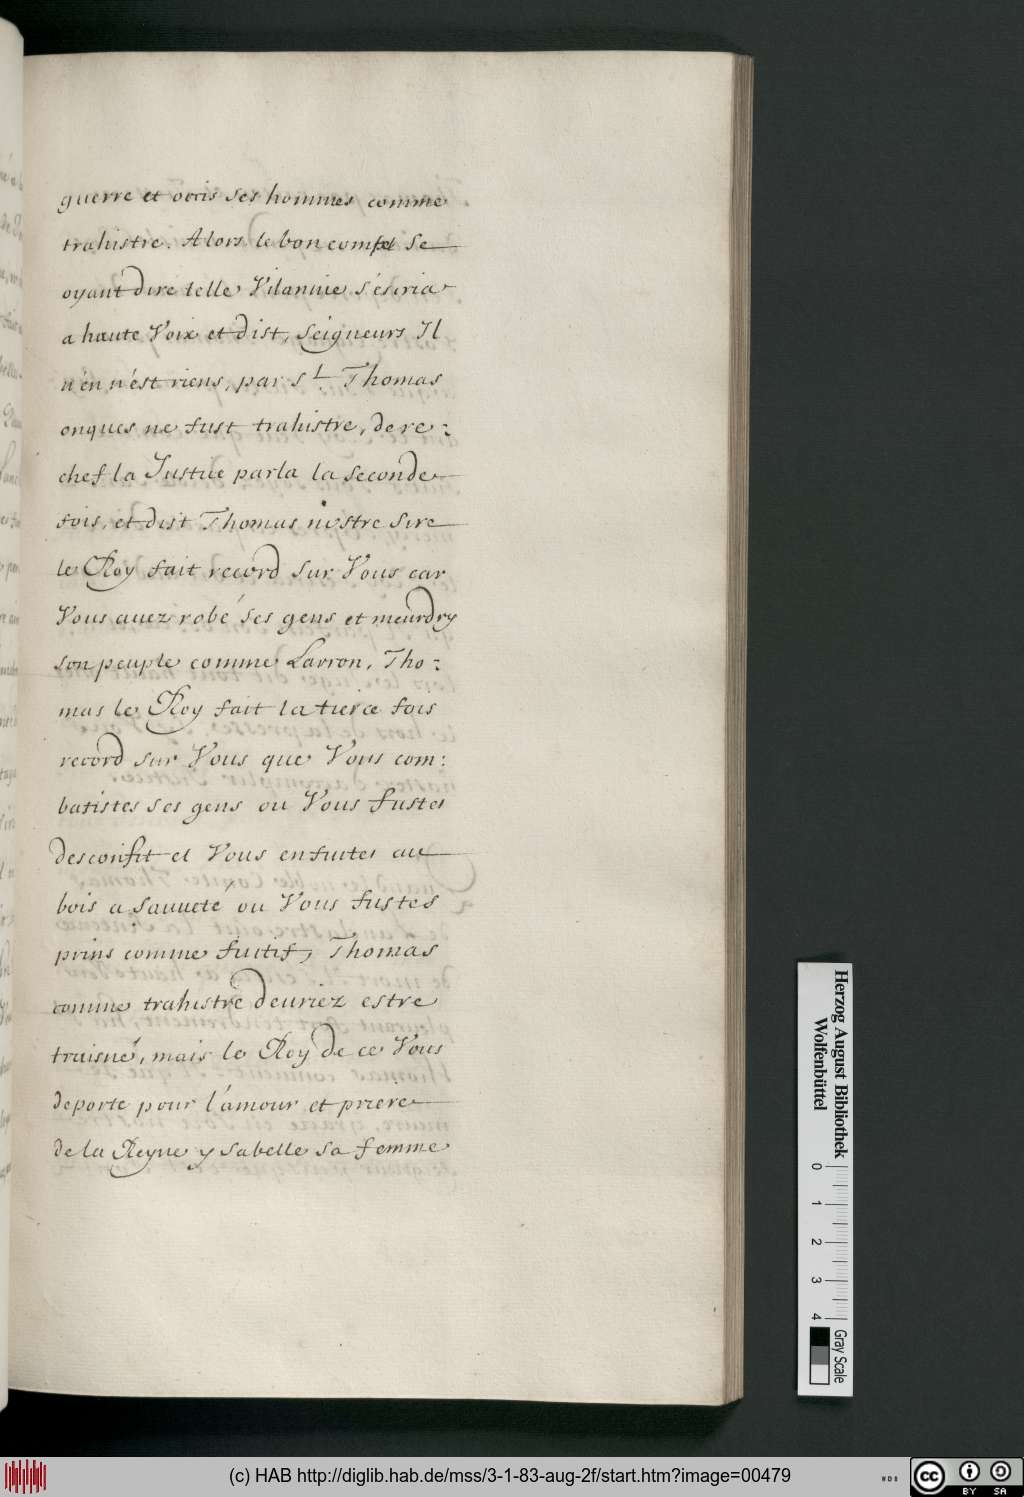 guerre et occis ses hommes comme
trahistre. Alors le bon comte se
oyant dire telle Vilannie s'escria
a haute Voix et dist, seigneurs Il
n'en n'est riens, par St. Thomas
onques ne fust trahistre, de re:
chef la Justice parla la seconde
fois, et dist Thomas nostre sire
le Roy fait record sur Vous car
Vous auez robé ses gens et meurdry
son peuple comme Larron, Tho:
mas le Roy fait la tierce fois
record sur Vous que Vous com:
batistes ses gens ou Vous fustes
desconfit et Vous enfuites au
bois a sauueté ou Vous fustes
prins comme fuitif, Thomas
comme trahistre deuriez estre
truisné, mais le Roy de ce Vous
deporte pour l'amour et priere
de la Reyne ysabelle sa femme
Herzog August Bibliothek
Wolfenbüttel
0 1 2 3 4
Gray Scale
(c) HAB http://diglib.hab.de/mss/3-1-83-aug-2f/start.htm?image=00479
WDB
cc BY SA